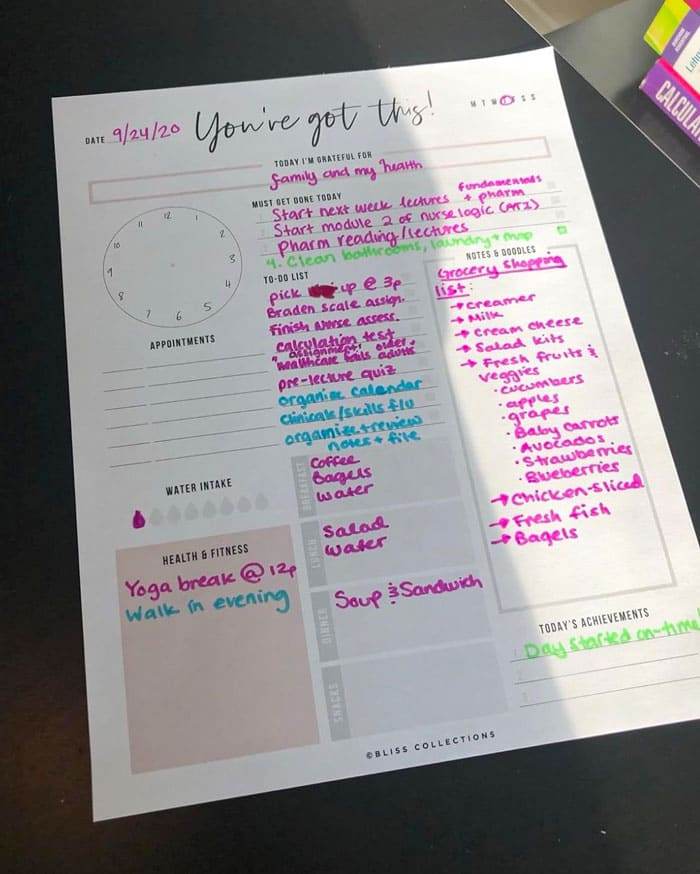 DATE 9/24/20
You've got this!
M T W T F S S
TODAY I'M GRATEFUL FOR
family and my health
MUST GET DONE TODAY
Start next week lectures fundamentals + pharm
Start module 2 of nurse logic (ATI)
Pharm reading/lectures
4. Clean bathrooms, laundry + mop
12
1
2
3
4
5
6
7
8
9
10
11
APPOINTMENTS
TO-DO LIST
pick up @ 3p
Braden scale assign.
Finish nurse assess.
calculation test
" assignment: older
healthcare adults
pre-lecture quiz
organize calendar
clinicals/skills flu
organize + review
notes + file
NOTES & DOODLES
Grocery shopping
list:
→ creamer
→ Milk
→ cream cheese
→ Salad kits
→ Fresh fruits &
veggies
· cucumbers
· apples
· grapes
· Baby carrots
· Avocados
· Strawberries
· Blueberries
→ Chicken-sliced
→ Fresh fish
→ Bagels
WATER INTAKE
BREAKFAST
Coffee
Bagels
water
LUNCH
Salad
water
DINNER
Soup & Sandwich
SNACKS
HEALTH & FITNESS
Yoga break @ 12p
Walk in evening
TODAY'S ACHIEVEMENTS
Day started on-time!
©BLISS COLLECTIONS